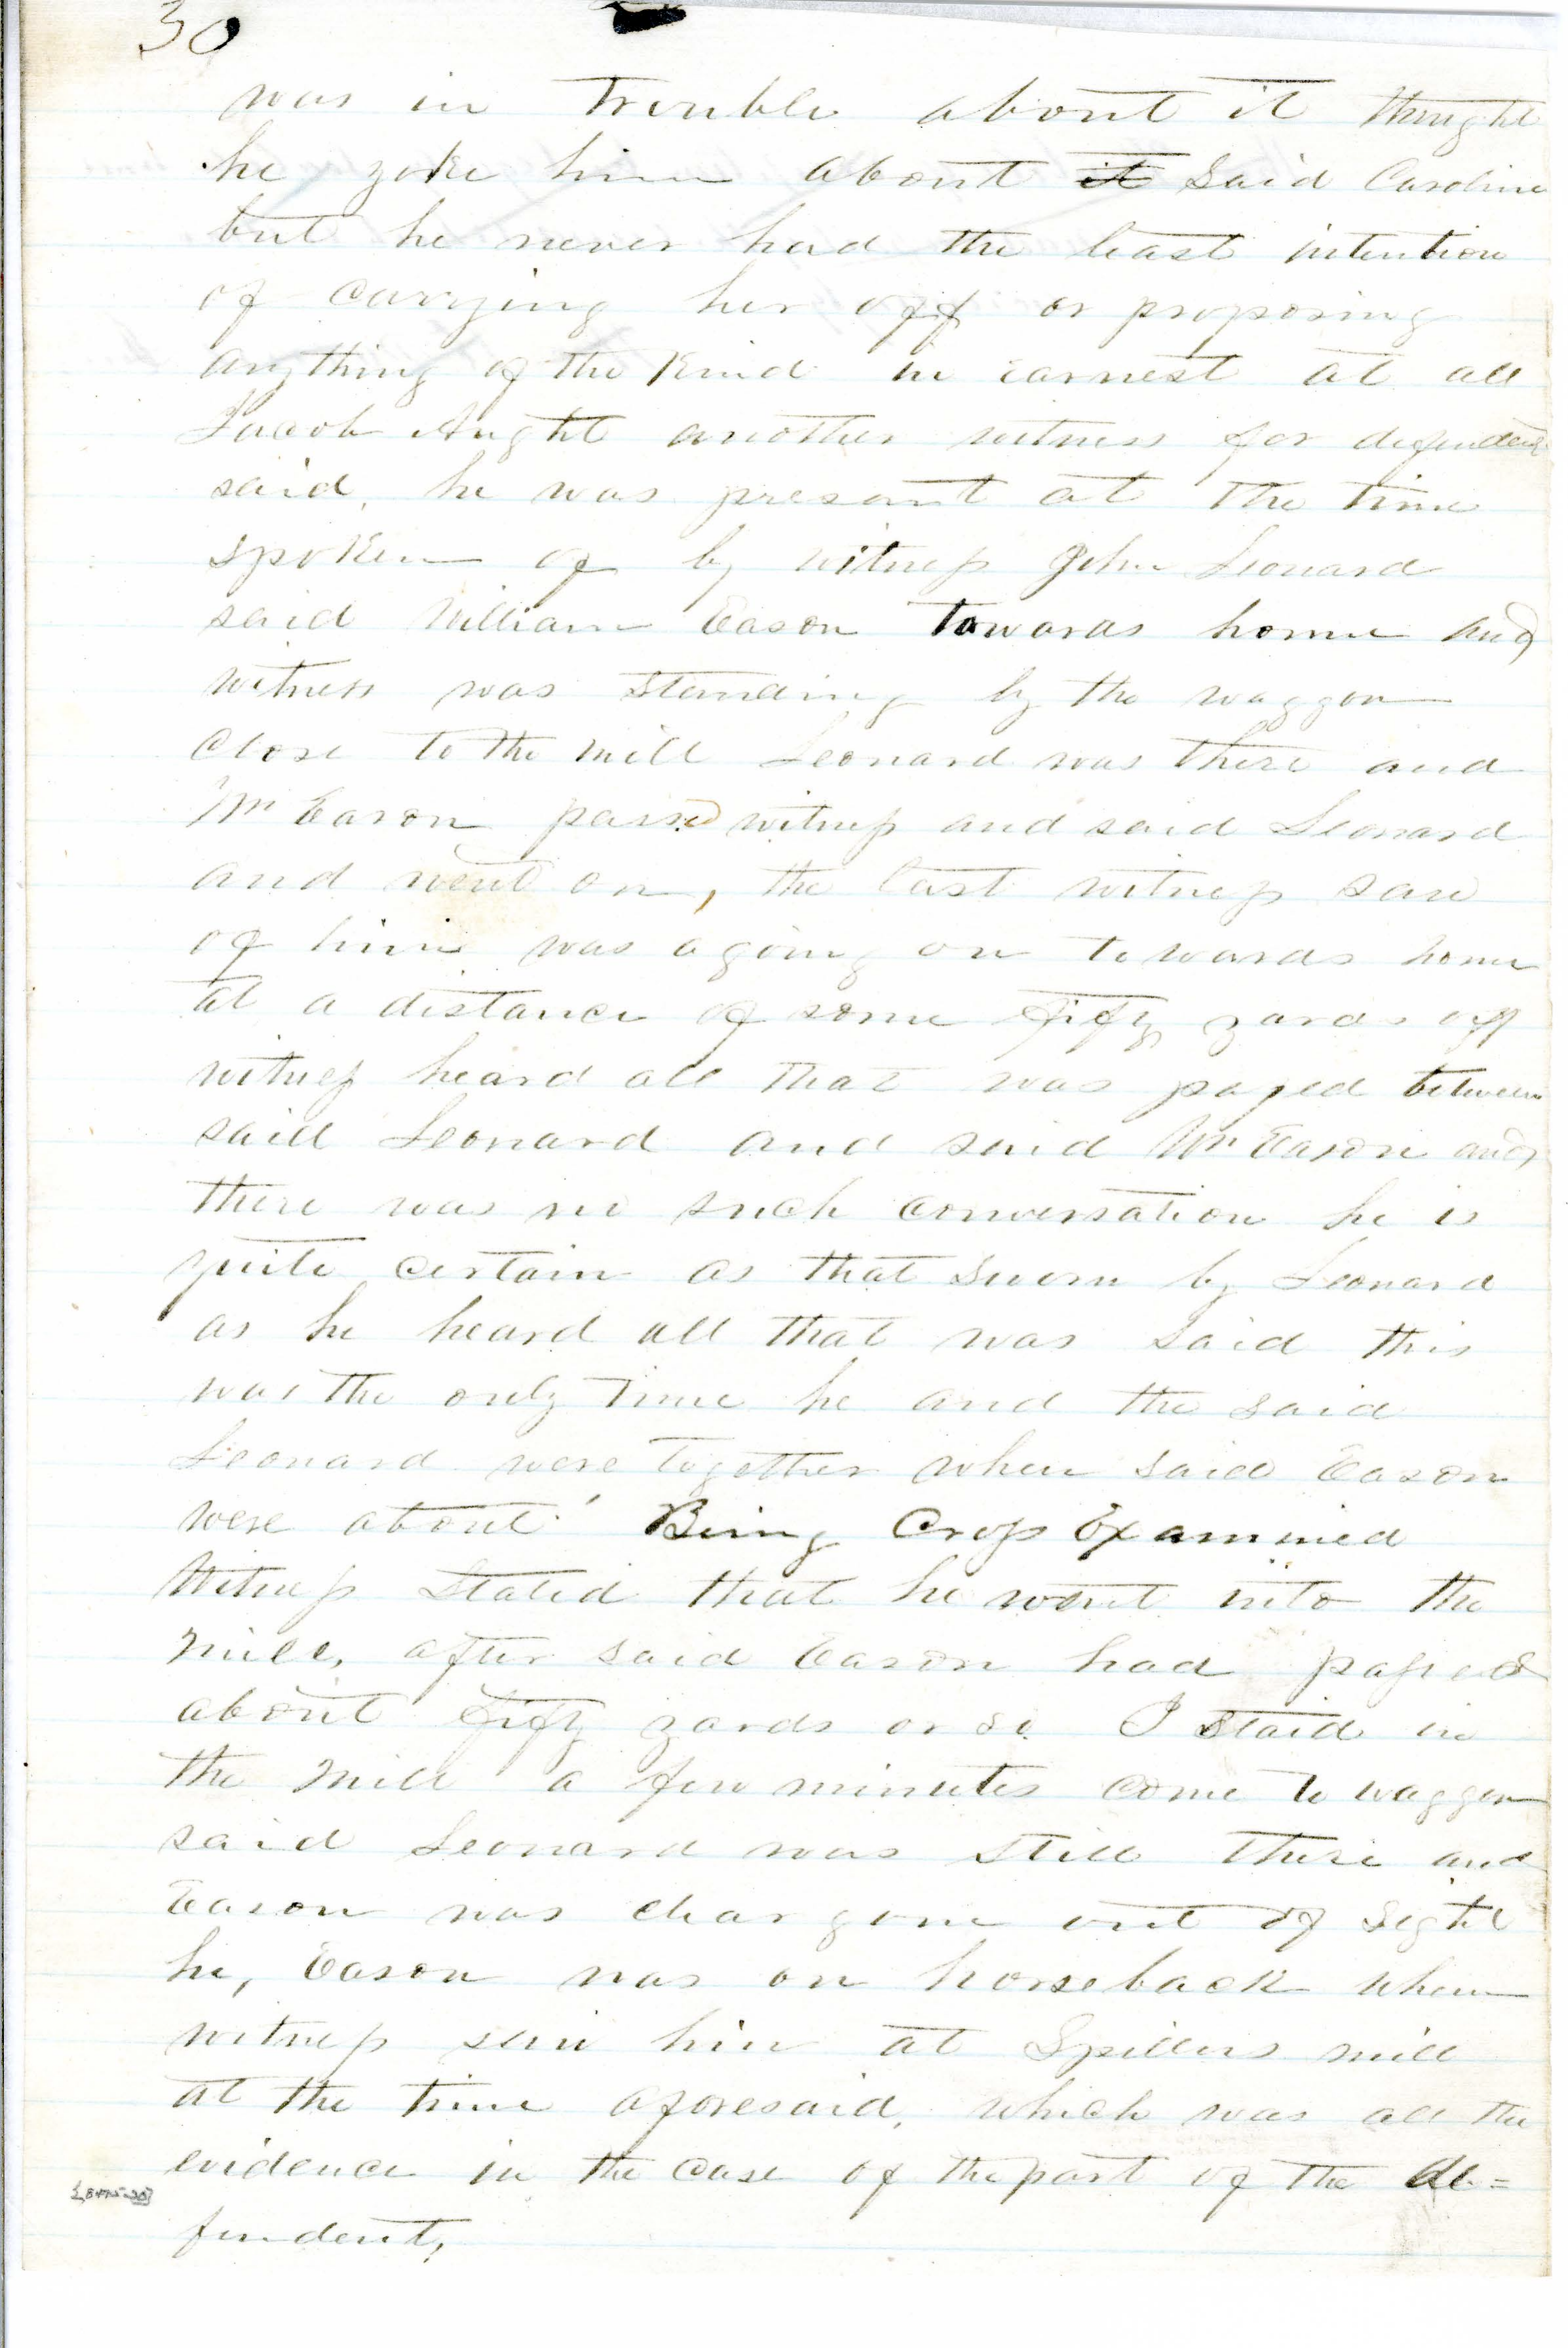 30
was in trouble about it thought
he yoke him about it said Caroline
but he never had the least intention
of carrying her off or proposing
anything of the kind in earnest at all
Jacob Aught another witness for defendant
said, he was presant at the time
spoken of by witness John Leonard
said William Eason towards home and
witness was standing by the waggon
close to the mill Leonard was there and
Wm Eason passed witness and said Leonard
and went on, the last witness saw
of him was agoing on towards home
at a distance of some fifty yards off
witness heard all that was passed between
said Leonard and said Wm Eason and
there was no such conversation he is
quite certain as that sworn by Leonard
as he heard all that was said this
was the only time he and the said
Leonard were together when said Eason
were about Being Cross Examined
Witness stated that he went into the
mill, after said Eason had passed
about fifty yards or so I staid in
the mill a few minutes come to waggon
said Leonard was still there and
Eason was clear gone out of sight
he, Eason was on horseback when
witness saw him at Spillers mill
at the time aforesaid, which was all the
evidence in the case of the part of the de=
fendent,